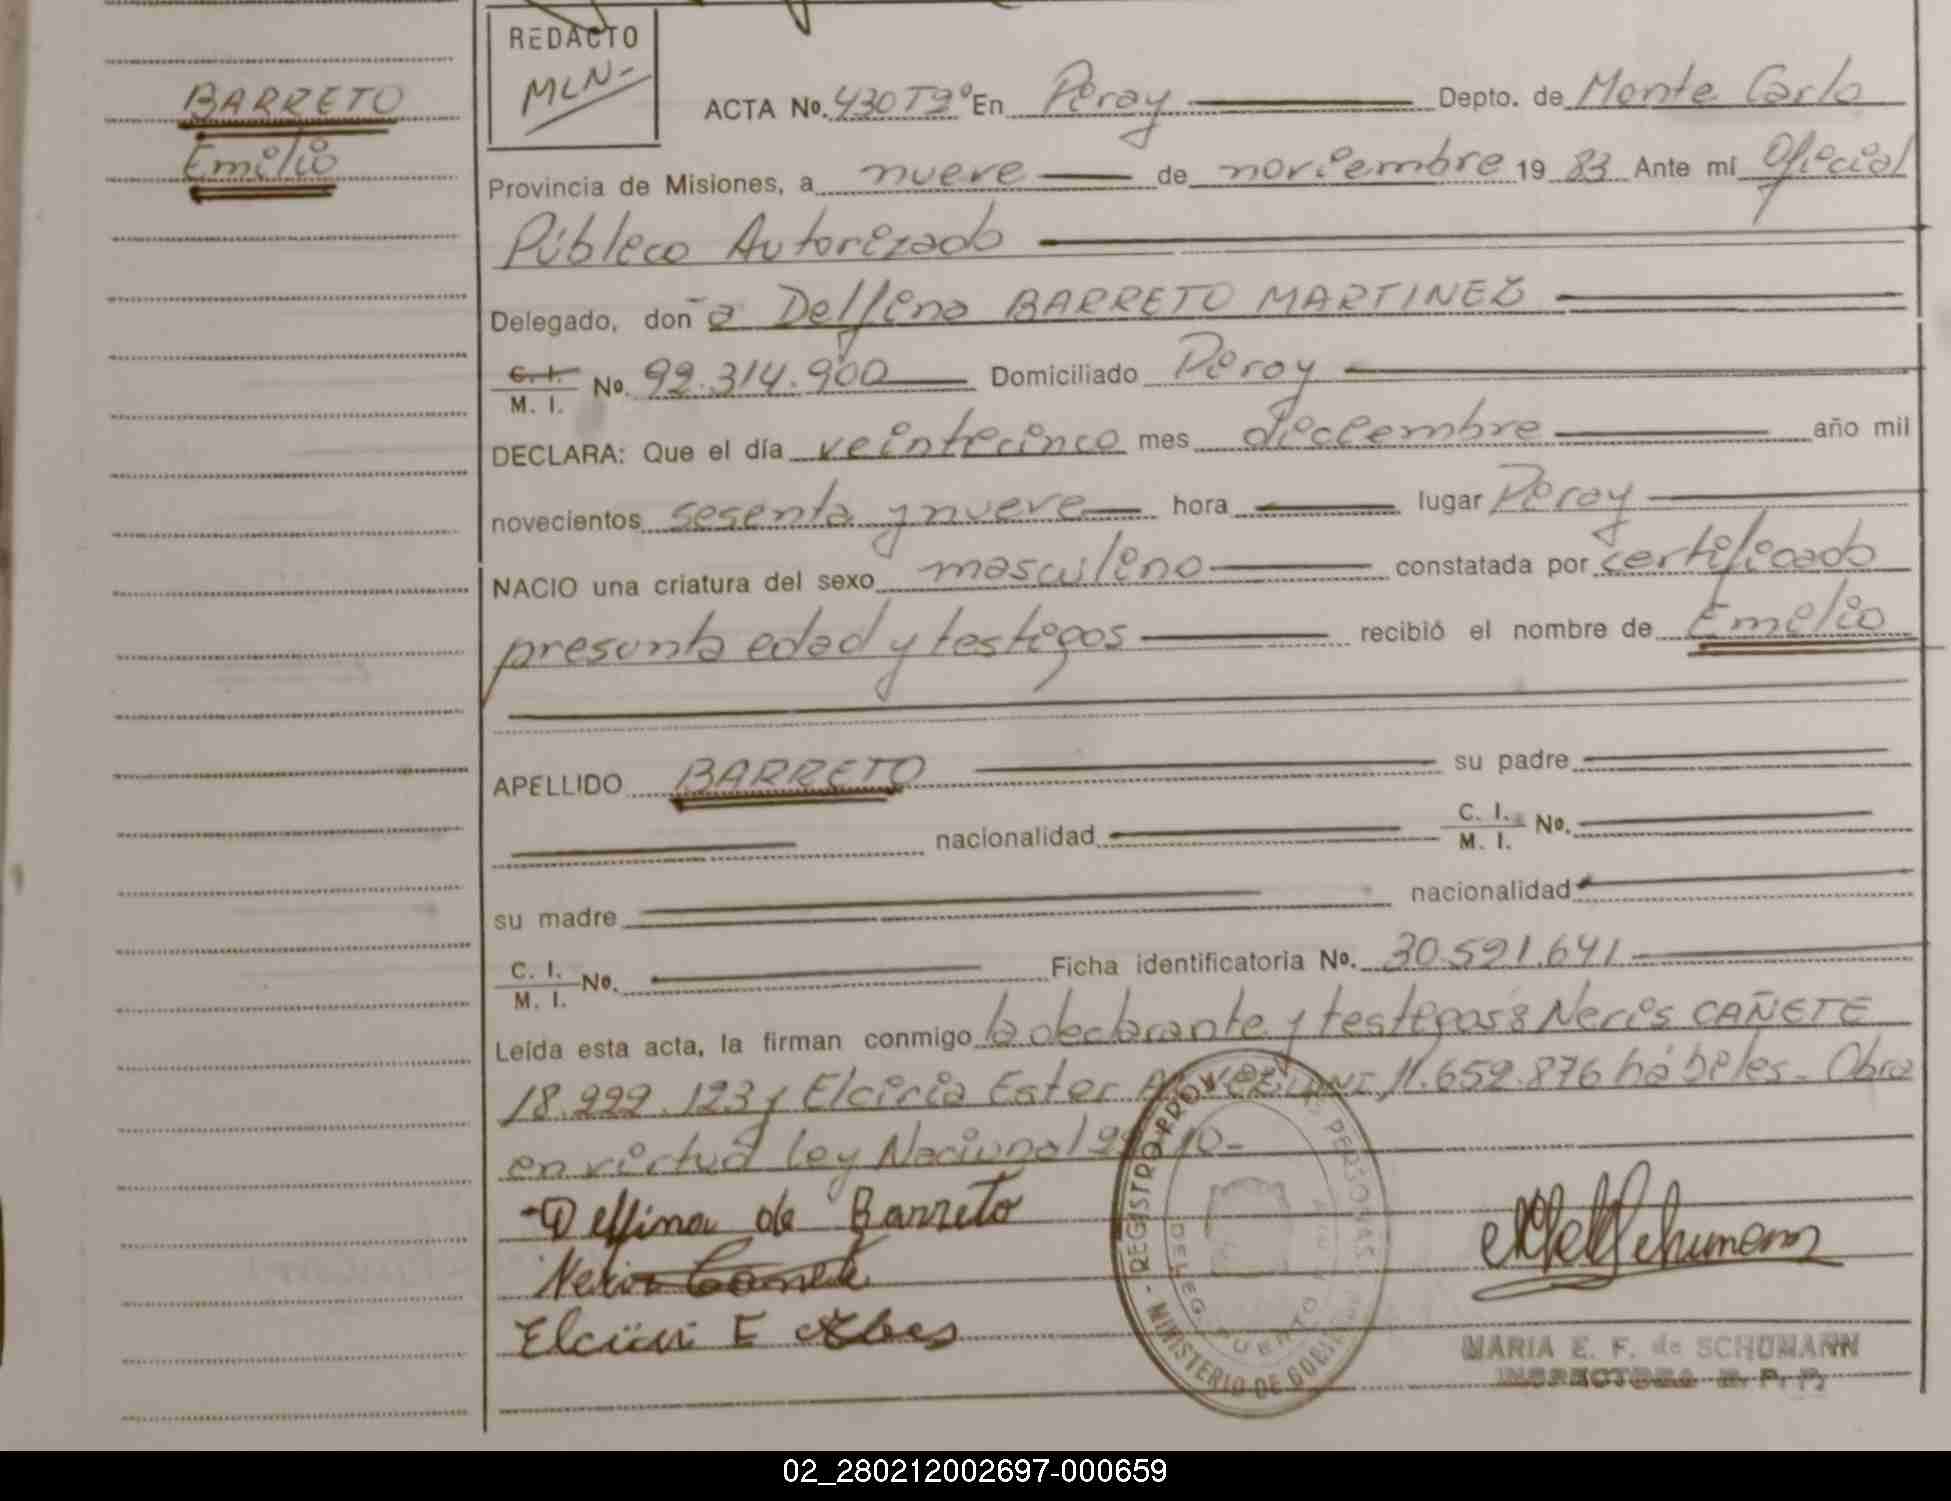 BARRETO
Emilio
REDACTO
MLN-
ACTA No. 430 Tº En Piray Depto. de Monte Carlo
Provincia de Misiones, a nueve de noviembre 19 83 Ante mí Oficial
Público Autorizado
Delegado, don a Delfina BARRETO MARTINEZ
C. I. / M. I. No. 92.314.900 Domiciliado Piray
DECLARA: Que el día veinticinco mes diciembre año mil
novecientos sesenta y nueve hora lugar Piray
NACIO una criatura del sexo masculino constatada por certificado
presunta edad y testigos recibió el nombre de Emilio
APELLIDO BARRETO su padre
nacionalidad C. I. / M. I. No.
su madre nacionalidad
C. I. / M. I. No. Ficha identificatoria No. 30.591.641
Leída esta acta, la firman conmigo la declarante y testigos: Neris CAÑETE
18.999.123 y Elciria Ester 11.659.876 hábiles. Obra
en virtud ley Nacional
Delfina de Barreto
REGISTRO PROV. PERSONAS
MINISTERIO DE GOBIERNO
DELEG. PUERTO
MARIA E. F. de SCHUMANN
INSPECTORA R. P. P.
02_280212002697-000659